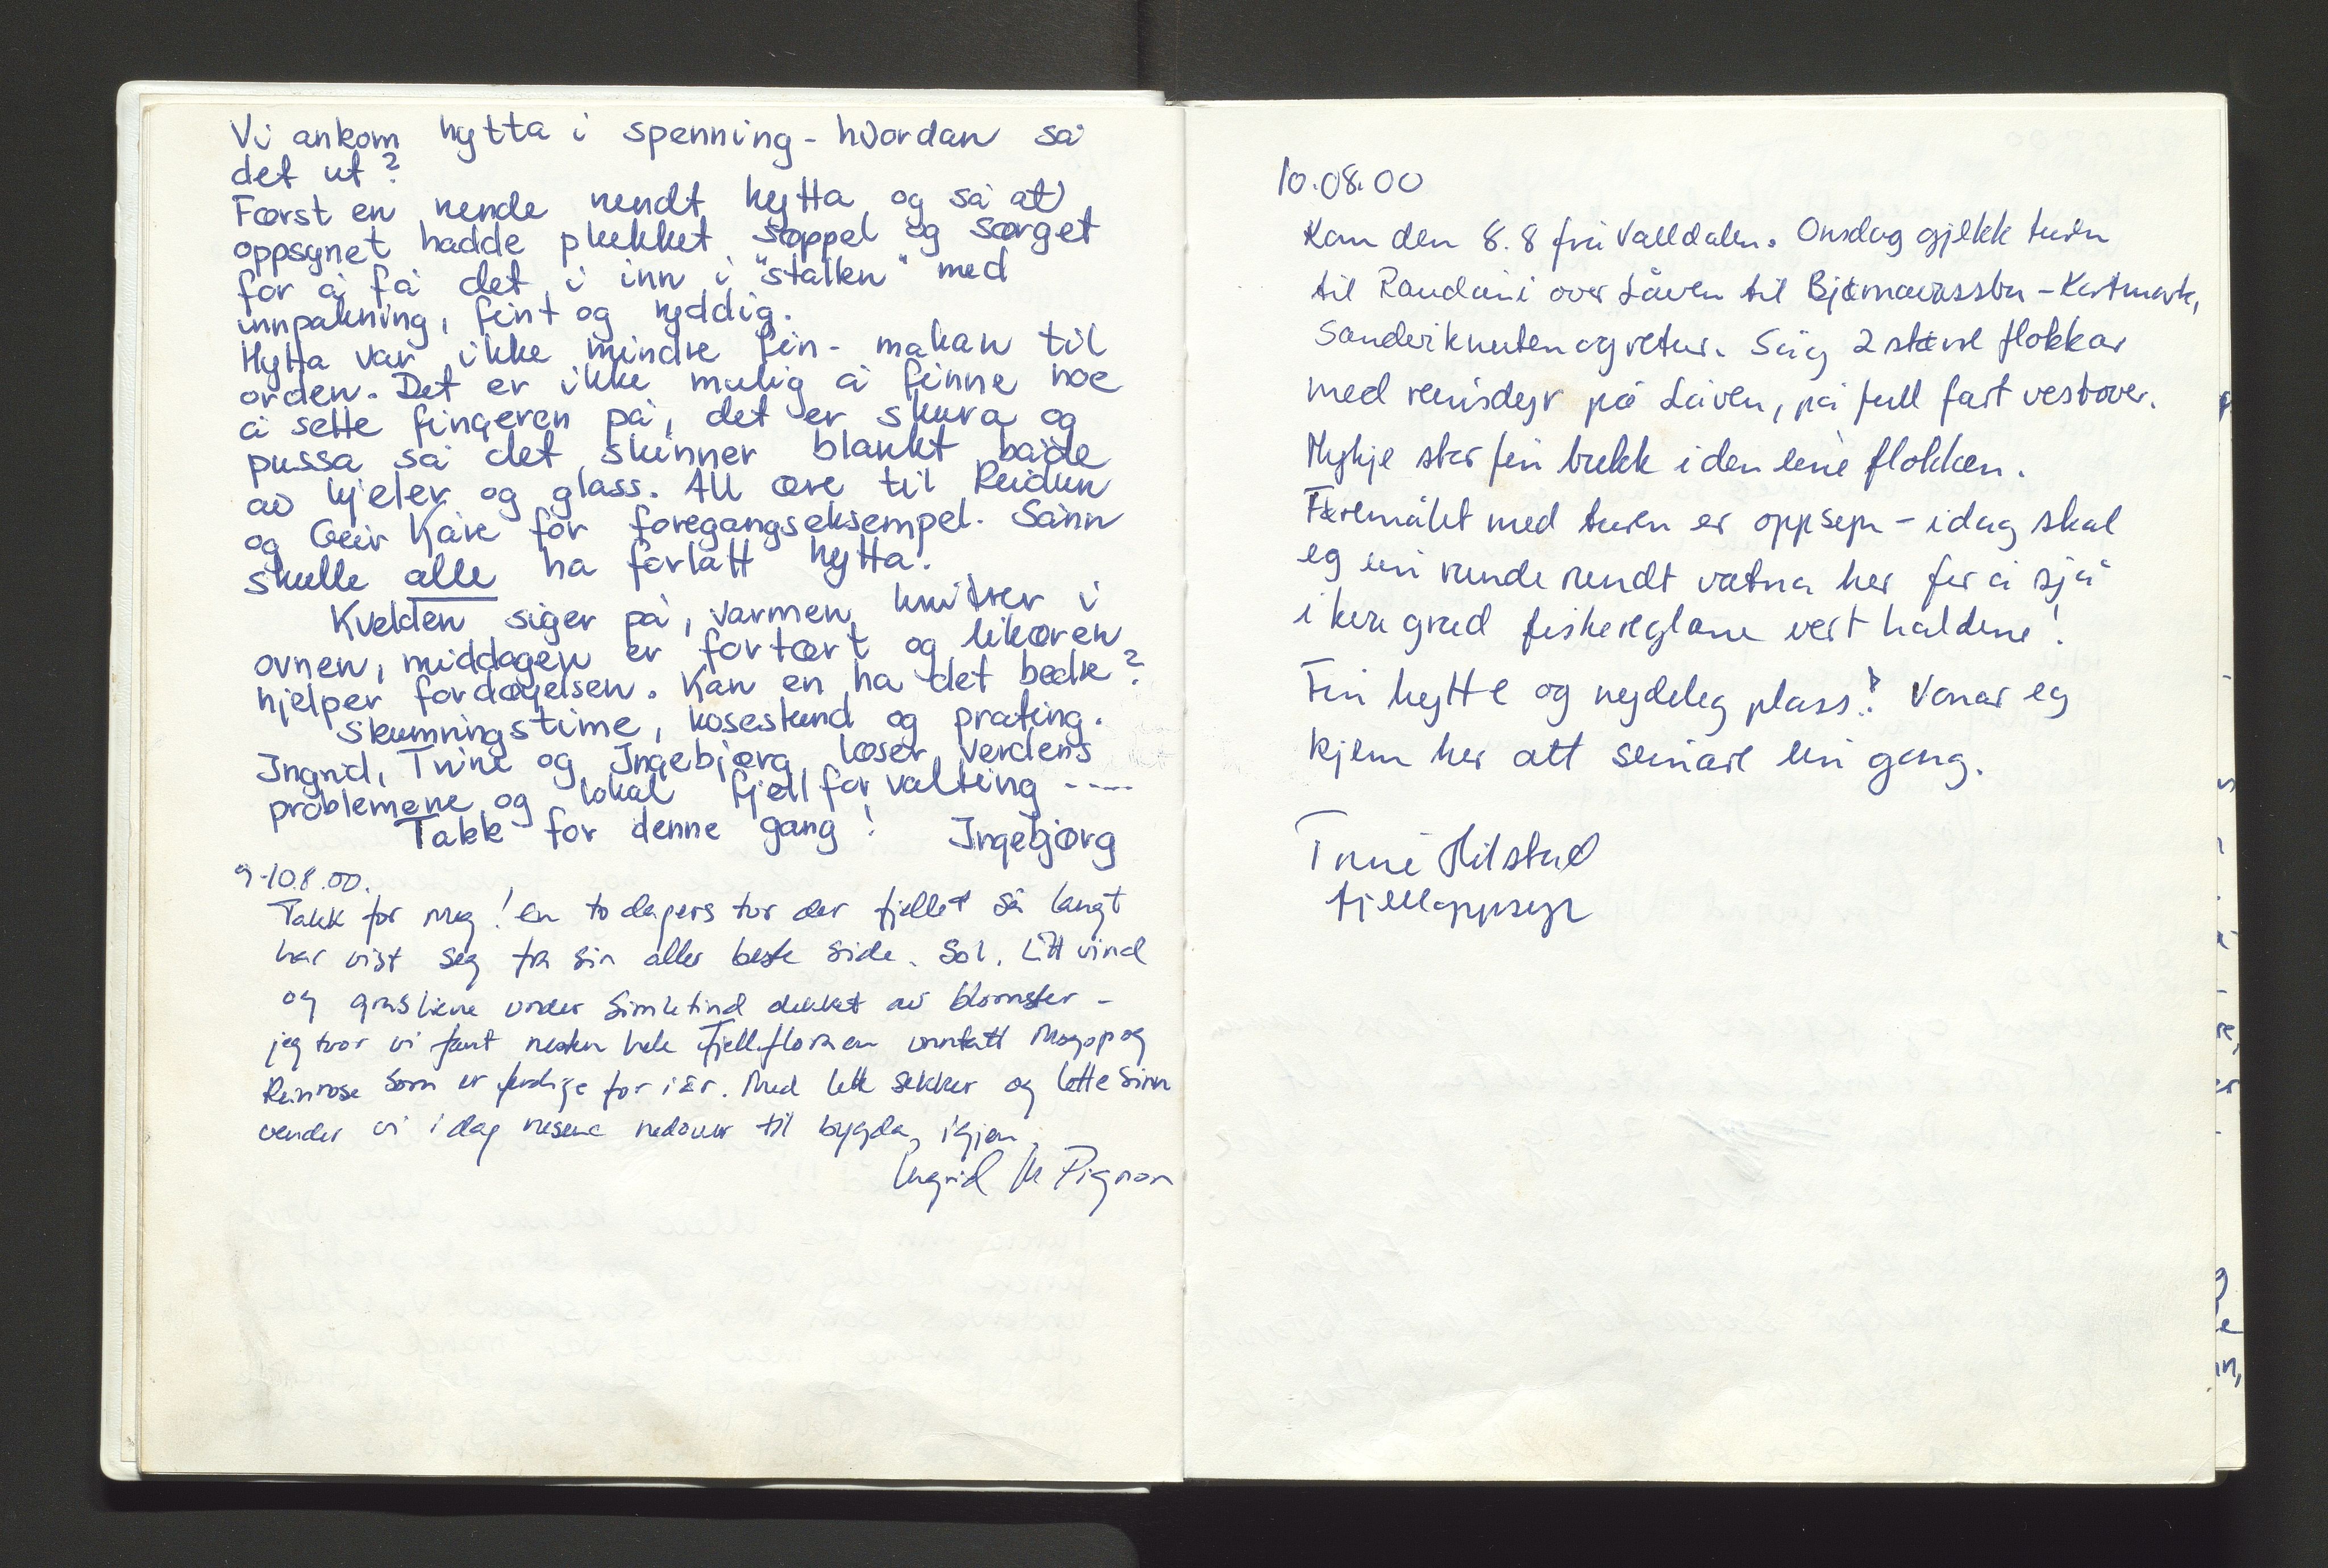 Vi ankom hytta i spenning - hvordan så
det ut?
Først en runde rundt hytta og så at
oppsynet hadde plukket søppel og sørget
for å få det i inn i "stallen" med
innpakning, fint og ryddig.
Hytta var ikke mindre fin - makan til
orden. Det er ikke mulig å finne noe
å sette fingeren på, det er skura og
pussa så det skinner blankt både
av kjeler og glass. All ære til Reidun
og Geir Kåre for foregangseksempel. Sånn
skulle alle ha forlatt hytta!
Kvelden siger på, varmen knitrer i
ovnen, middagen er fortært og likøren
hjelper fordøyelsen. Kan en ha det bedre?
Skumringstime, kosestund og prating.
Ingrid, Trine og Ingebjørg løser verdens
problemene og lokal fjellforvalting ----
Takk for denne gang! Ingebjørg
9-10.8.00.
Takk for meg! En to dagers tur der fjellet så langt
har vist seg fra sin aller beste side. Sol, Litt vind
og gresliene under Simletind dekket av blomster -
jeg tror vi fant nesten hele Fjellfloraen unntatt Mogop og
Reinrose som er ferdige for i år. Med lette sekker og lette sinn
vender vi idag nesene nedover til bygda, igjen.
Ingrid M Pignon
10.08.00
Kom den 8.8 frå Valldalen. Onsdag gjekk turen
til over Låven til
og retur. Såg 2 større flokkar
med reinsdyr på Låven, på full fart vestover.
Mykje stor fin bukk i den eine flokken.
Føremålet med turen er oppsyn - idag skal
eg ein runde rundt vatna her for å sjå
i kva grad fiskereglane vert haldne!
Fin hytte og nydeleg plass! Vonar eg
kjem her att seinare ein gang.
Trine Hilstad
fjelloppsyn